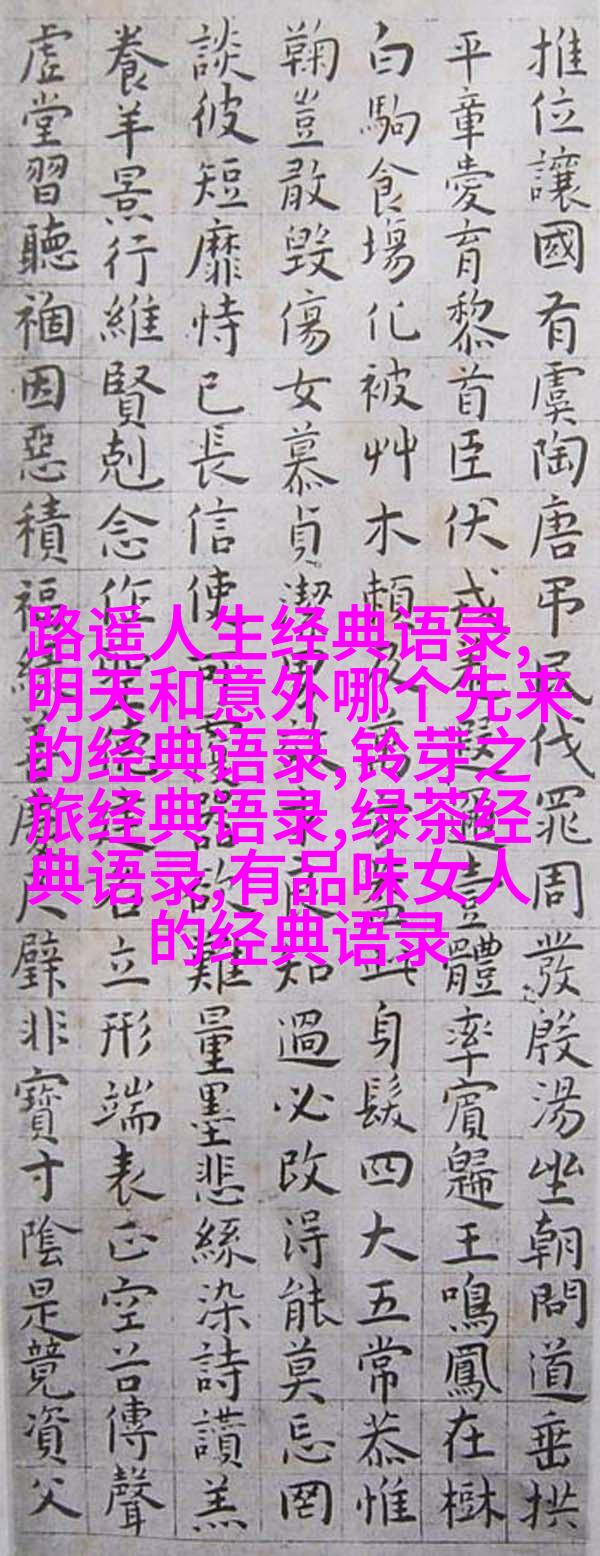 推位讓國有虞陶唐弔民伐罪周發殷湯坐朝問道垂拱
平章愛育黎首臣伏戎遐邇壹體率賓歸王鳴鳳在樹
白駒食場化被艸木賴及萬此身髮四大五常恭惟
鞠豈敢毀傷女慕貞潔男良知過必改得能莫忘罔
談彼短靡恃已長信使可器欲難量墨悲絲染詩讚羔
養羊景行維賢剋念作建名立形端表正空谷傳聲
虛堂習聽禍因惡積福慶尺璧非寶寸陰是競資父
路遥人生经典语录,
明天和意外哪个先来
的经典语录,铃芽之
旅经典语录,绿茶经
典语录,有品味女人
的经典语录